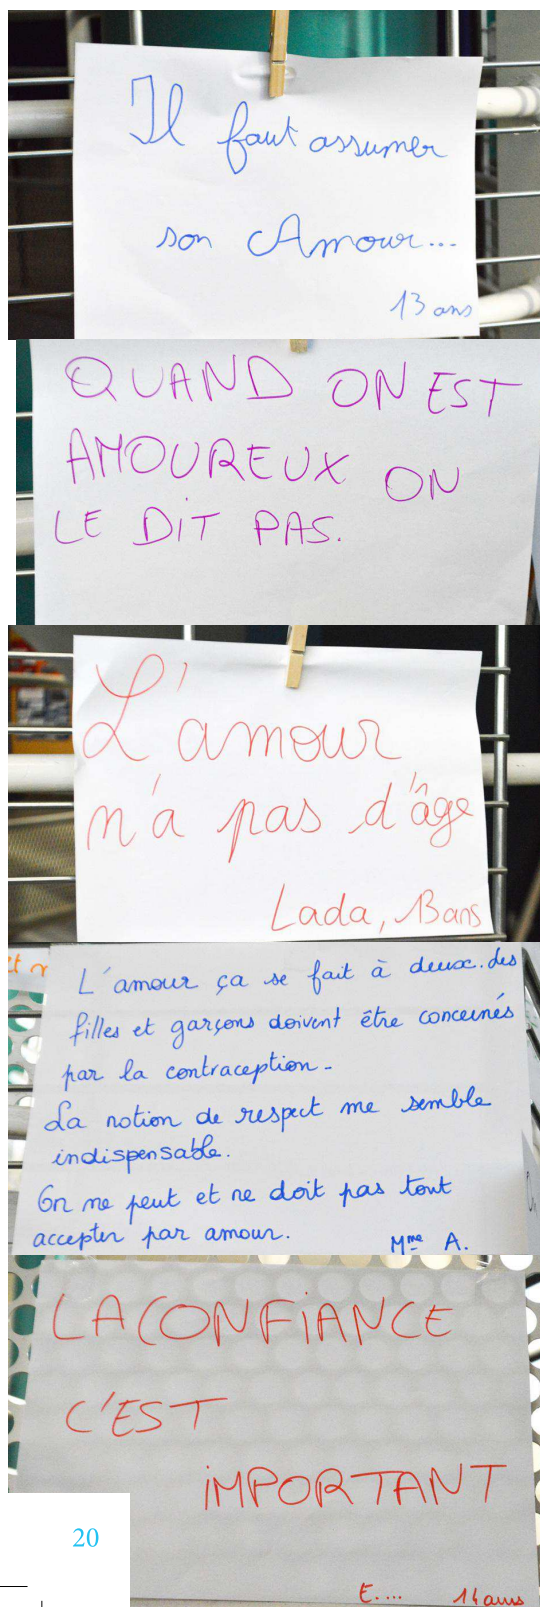 Il faut assumer
son Amour...
13 ans
QUAND ON EST
AMOUREUX ON
LE DIT PAS.
L'amour
n'a pas d'âge
Lada, 13ans
L'amour ça se fait à deux. des
filles et garçons doivent être concernés
par la contraception.
La notion de respect me semble
indispensable.
On ne peut et ne doit pas tout
accepter par amour.
Mme A.
LA CONFIANCE
C'EST
IMPORTANT
E.... 14 ans
20